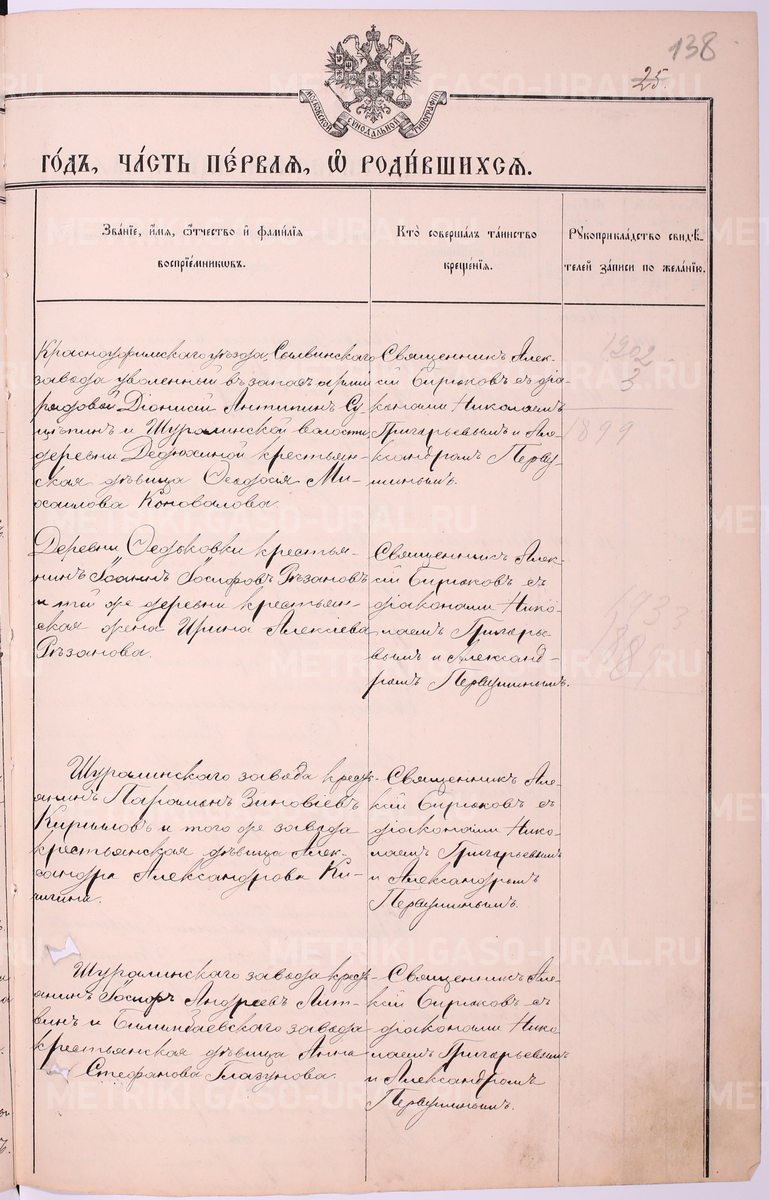 138
25.
МОСКОВСКОЙ СѴНОДАЛЬНОЙ ТИПОГРАФІИ
ГО́ДЪ, ЧА́СТЬ ПЕ́РВАЯ, Ѽ РОДИ́ВШИХСЯ.
Зва́нїе, и́мѧ, ѻ́тчество и҆ фами́лїѧ
воспрїе́мникѡвъ.
Кто̀ соверша́лъ та́инство
креще́нїѧ.
Рꙋкоприкла́дство свидѣ́-
телей за́писи по жела́нїю.
Красноуфимскаго уѣзда, Сылвинскаго
завода уволенный въ запасъ арміи
рядовой Діонисій Антипинъ
и Шуралинской волости,
деревни Дедюхиной крестьян-
ская дѣвица Ѳеодосія Ми-
хаилова Коновалова.
Священникъ Алек-
сій Бирюковъ съ діа-
конами Николаемъ
Григорьевымъ и Але-
ксандромъ Перву-
шинымъ.
1902
3
1899
Деревни Ѳедьковки крестья-
нинъ Іоаннъ Іосифовъ Рѣзановъ
и той же деревни крестьян-
ская жена Ирина Алексіева
Рѣзанова.
Священникъ Алек-
сій Бирюковъ съ
діаконами Нико-
лаемъ Григорье-
вымъ и Александ-
ромъ Первушинымъ.
Шуралинскаго завода крест-
янинъ Парамонъ Зиновіевъ
Кирилловъ и того же завода
крестьянская дѣвица Алек-
сандра Александрова Ки-
чигина.
Священникъ Але-
ксій Бирюковъ съ
діаконами Нико-
лаемъ Григорьевымъ
и Александромъ
Первушинымъ.
Шуралинскаго завода крест-
янинъ Андреевъ Лит-
винъ и Билимбаевскаго завода
крестьянская дѣвица Анна
Стефанова Глазунова.
Священникъ Але-
ксій Бирюковъ съ
діаконами Нико-
лаемъ Григорьевымъ
и Александромъ
Первушинымъ.
METRIKI.GASO-URAL.RU